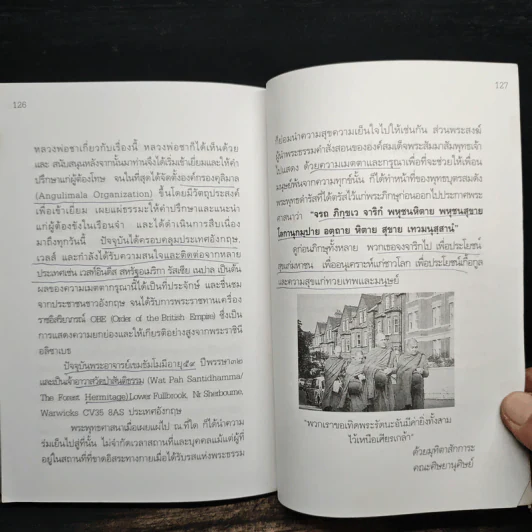 126
หลวงพ่อชาเกี่ยวกับเรื่องนี้ หลวงพ่อชาก็ได้เห็นด้วย
และ สนับสนุนหลังจากนั้นมาท่านจึงได้เริ่มเข้าเยี่ยมและให้คำ
ปรึกษาแก่ผู้ต้องโทษ จนในที่สุดได้จัดตั้งองค์กรองคุลิมาล
(Angulimala Organization) ขึ้นโดยมีวัตถุประสงค์
เพื่อเข้าเยี่ยม เผยแผ่ธรรมะให้คำปรึกษาและแนะนำ
แก่ผู้ต้องขังในเรือนจำ และได้ดำเนินการสืบเนื่อง
มาถึงทุกวันนี้ ปัจจุบันได้ครอบคลุมประเทศอังกฤษ,
เวลส์ และกำลังได้รับความสนใจและติดต่อจากหลาย
ประเทศเช่น เวสท์อินดีส สหรัฐอเมริกา รัสเซีย เนปาล เป็นต้น
ผลของความเมตตากรุณานี้ได้เป็นที่ประจักษ์ และชื่นชม
จากประชาชนชาวอังกฤษ จนได้รับการพระราชทานเครื่อง
ราชอิสริยาภรณ์ OBE (Order of the British Empire) ซึ่งเป็น
การแสดงความยกย่องและให้เกียรติอย่างสูงจากพระราชินี
อลิซาเบธ
ปัจจุบันพระอาจารย์เขมธัมโมมีอายุ๕๙ ปีพรรษา๓๒
และเป็นเจ้าอาวาสวัดป่าสันติธรรม (Wat Pah Santidhamma/
The Forest Hermitage)Lower Fullbrook, Nr Sherbourne,
Warwicks CV35 8AS ประเทศอังกฤษ
พระพุทธศาสนาเมื่อเผยแผ่ไป ณ ที่ใด ก็ได้นำความ
ร่มเย็นไปสู่ที่นั้น ไม่จำกัดเวลาสถานที่และบุคคลแม้แต่ผู้ที่
อยู่ในสถานที่ที่ขาดอิสระทางกายเมื่อได้รับรสแห่งพระธรรม
127
ก็ย่อมนำความสุขความเย็นใจไปให้เช่นกัน ส่วนพระสงฆ์
ผู้นำพระธรรมคำสั่งสอนขององค์สมเด็จพระสัมมาสัมพุทธเจ้า
ไปแสดง ด้วยความเมตตาและกรุณาเพื่อที่จะช่วยให้เพื่อน
มนุษย์พ้นจากความทุกข์นั้น ก็ได้ทำหน้าที่ของพุทธบุตรสมดัง
พระพุทธดำรัสที่ได้ตรัสไว้แก่พระภิกษุก่อนออกไปประกาศพระ
ศาสนาว่า "จรถ ภิกฺขเว จาริกํ พหุชนหิตาย พหุชนสุขาย
โลกานุกมฺปาย อตฺถาย หิตาย สุขาย เทวมนุสฺสานํ"
ดูก่อนภิกษุทั้งหลาย พวกเธอจงจาริกไป เพื่อประโยชน์
สุขแก่มหาชน เพื่ออนุเคราะห์แก่ชาวโลก เพื่อประโยชน์เกื้อกูล
และความสุขแก่ทวยเทพและมนุษย์
"พวกเราขอเทิดพระรัตนะอันมีค่ายิ่งทั้งสาม
ไว้เหนือเศียรเกล้า"
ด้วยมุทิตาสักการะ
คณะศิษยานุศิษย์